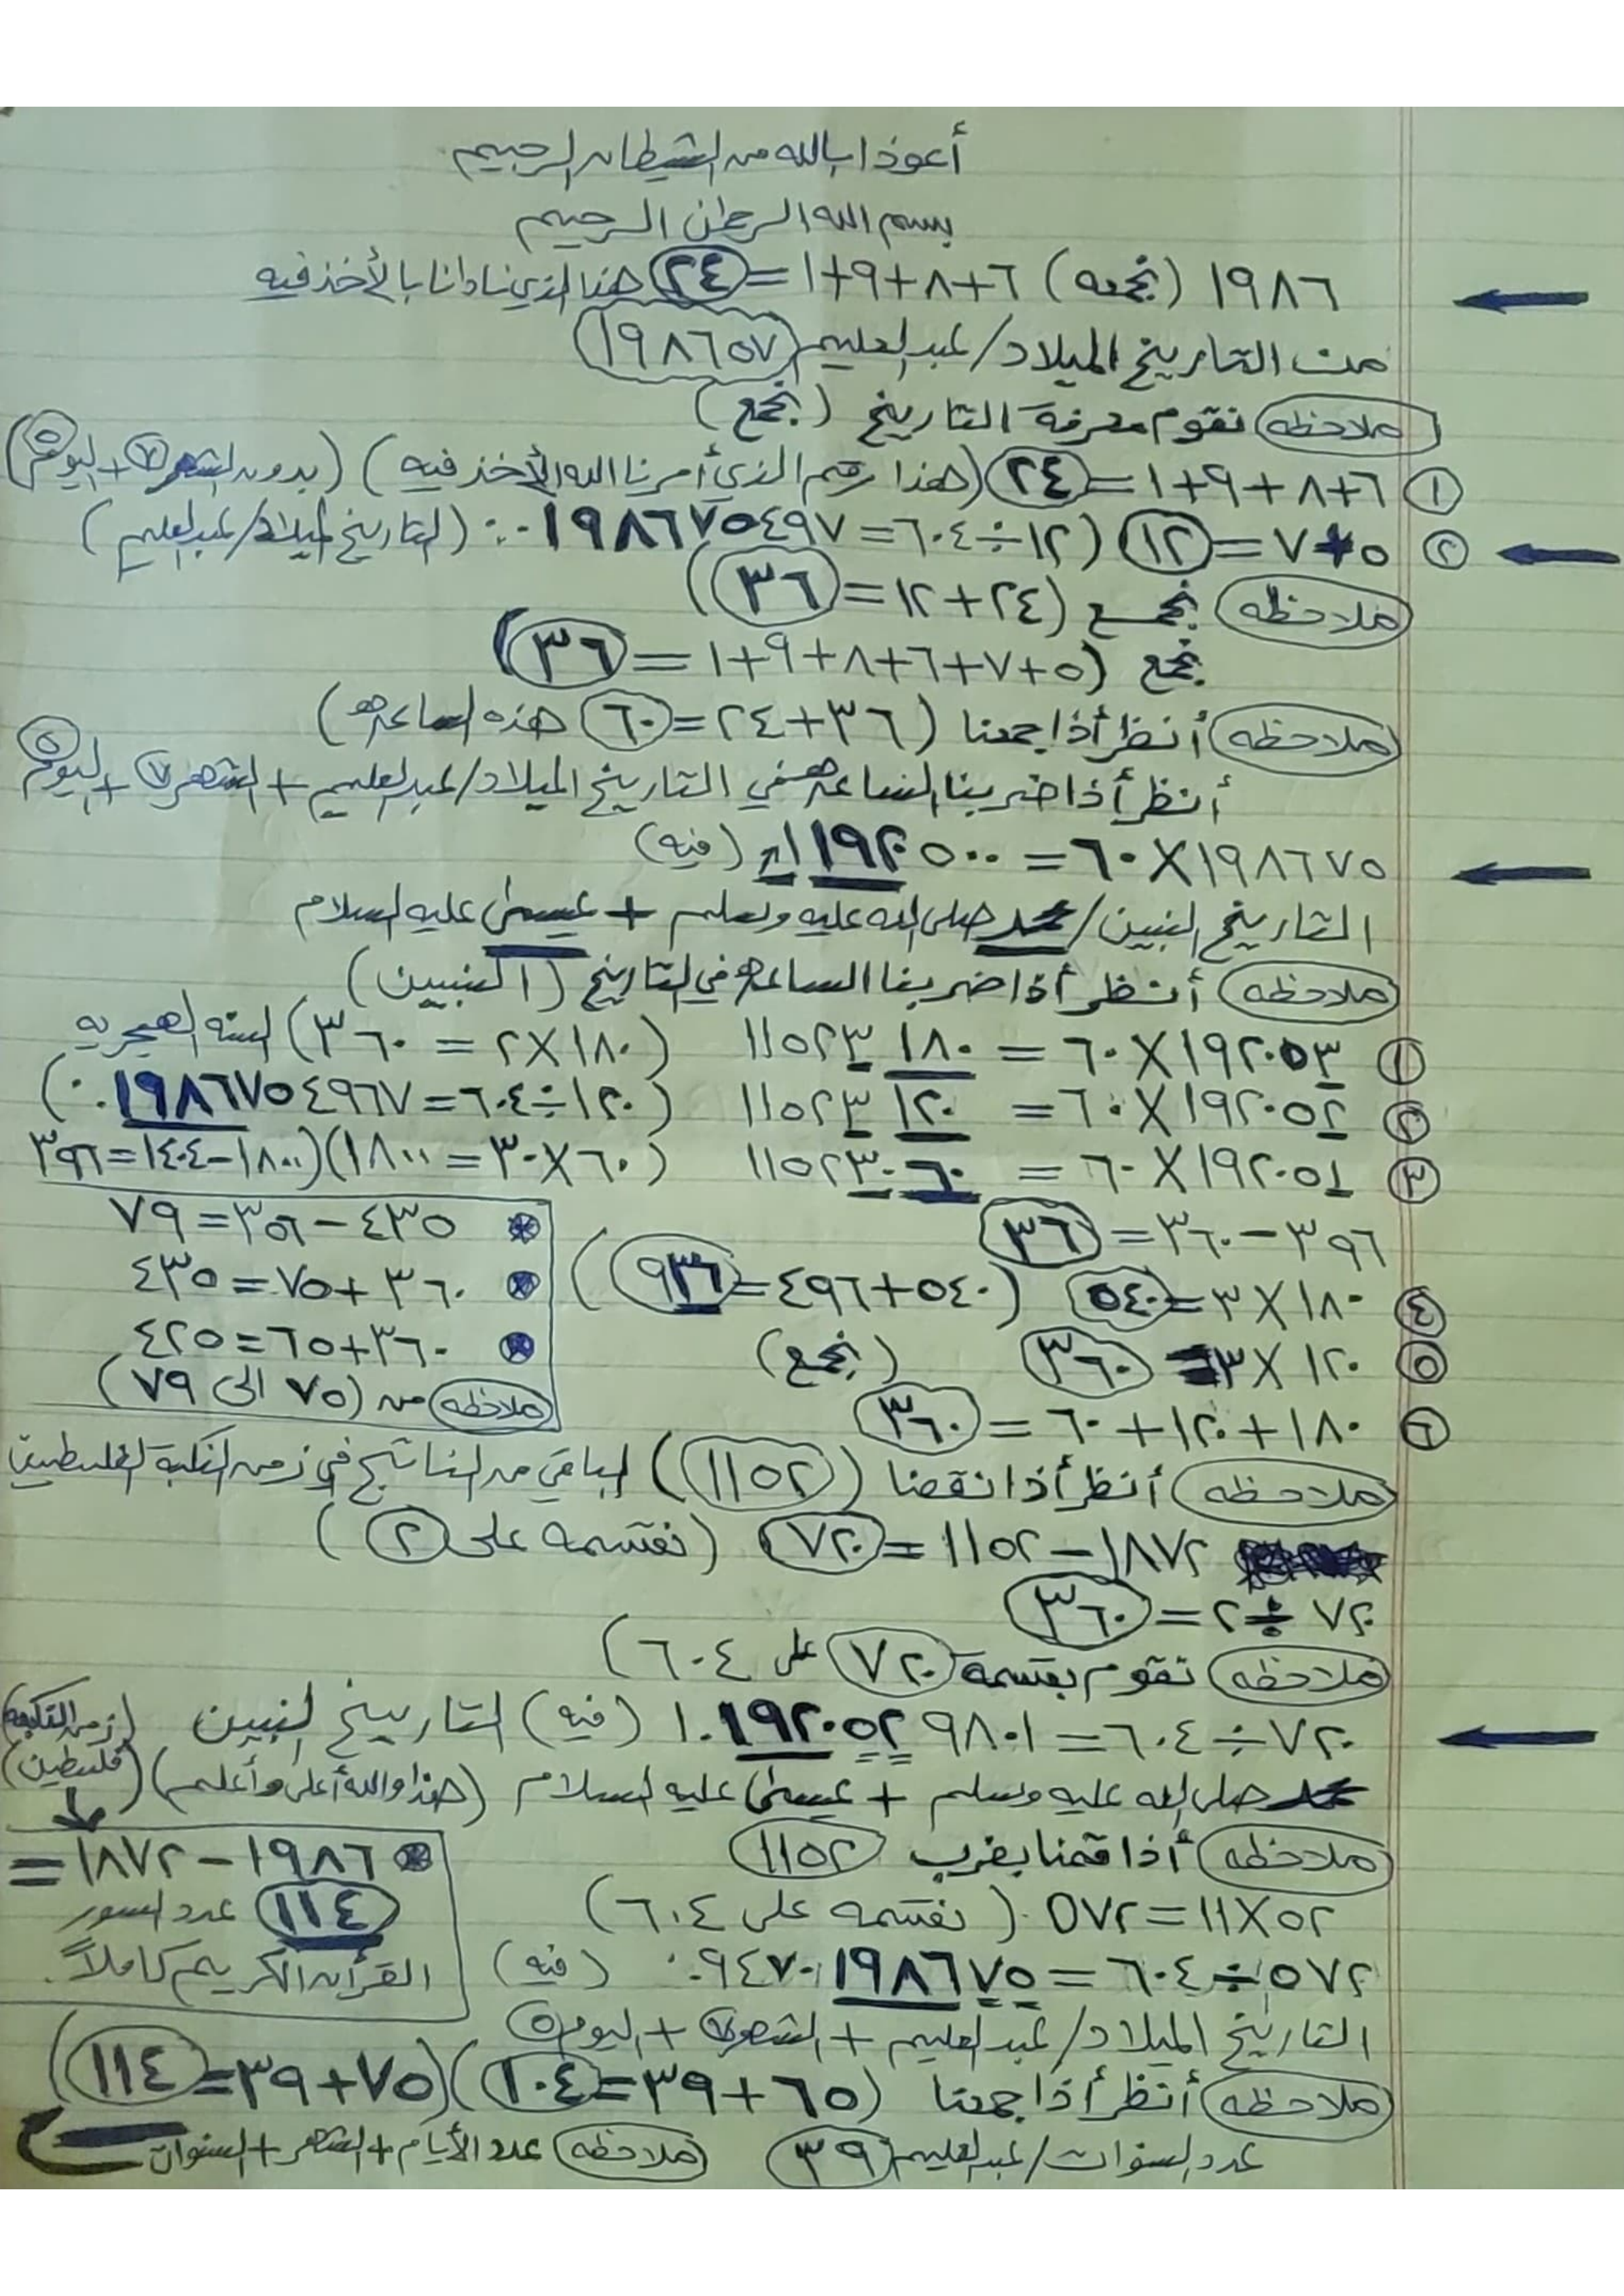 أعوذ ابالله من الشيطان الرجيم
بسم الله الرحمن الرحيم
١٩٨٦ (نجمعه) ٦+٨+٩+١=٢٤ هنا الذي نادانا بالأخذ فيه
من التاريخ الميلاد/عبدالعليم (١٩٨٦٥٧)
ملاحظه نقوم معرفة التاريخ (نجمع)
١ ٦+٨+٩+١=٢٤ (هذا رقم الذي أمرنا الله الأخذ فيه) (بدون الشهر ٧ + اليوم ٥)
٢ ٥+٧=١٢ (١٢÷٦٠٤=٠.٠١٩٨٦٧٥٤٩٧ (التاريخ الميلاد/عبدالعليم)
ملاحظه نجمع (٢٤+١٢=٣٦)
نجمع (٥+٧+٦+٨+٩+١=٣٦)
ملاحظه أنظر أذا جمعنا (٣٦+٢٤=٦٠ هذه الساعه)
أنظر أذا ضربنا الساعه في التاريخ الميلاد/عبدالعليم + الشهر ٧ + اليوم ٥
١٩٨٦٧٥×٦٠=١١٩٢٠٥٠٠ (فيه)
التاريخ النبين/محمد صلى الله عليه وسلم + عيسى عليه السلام
ملاحظه أنظر أذا ضربنا الساعه في التاريخ (النبيين)
١ ١٩٢٠٥٣×٦٠=١١٥٢٣١٨٠ (١٨٠×٢=٣٦٠) السنه الهجريه
٢ ١٩٢٠٥٢×٦٠=١١٥٢٣١٢٠ (١٢٠÷٦٠٤=٠.١٩٨٦٧٥٤٩٦٧)
٣ ١٩٢٠٥١×٦٠=١١٥٢٣٠٦٠ (٦٠×٣٠=١٨٠٠)(١٨٠٠-١٤٠٤=٣٩٦
٣٩٦-٣٦٠=٣٦
٤ ١٨٠×٣=٥٤٠ (٥٤٠+٤٩٦=٩٣٦)
٥ ١٢٠×٣=٣٦٠ (نجمع)
٦ ١٨٠+١٢٠+٦٠=٣٦٠
٤٣٥-٣٥٦=٧٩
٣٦٠+٧٥=٤٣٥
٣٦٠+٦٥=٤٢٥
ملاحظه من (٧٥ الى ٧٩)
ملاحظه أنظر أذا نقصنا (١١٥٢) الباقي من الناتج في زمن النكبة الفلسطين
١٨٧٢-١١٥٢=٧٢٠ (نقسمه على ٢)
٧٢٠÷٢=٣٦٠
ملاحظه نقوم بقسمة ٧٢٠ على ٦٠٤)
٧٢٠÷٦٠٤=١.١٩٢٠٥٢٩٨٠١ (فيه) التاريخ النبين (زمن النكبه
محمد صلى الله عليه وسلم + عيسى عليه السلام (هذا والله أعلى وأعلم) (فلسطين)
ملاحظه أذا قمنا بضرب ١١٥٢
٥٢×١١=٥٧٢ (نقسمه على ٦٠٤)
٥٧٢÷٦٠٤=٠.٩٤٧٠١٩٨٦٧٥ (فيه)
١٩٨٦-١٨٧٢=
١١٤ عدد السور
القرأن الكريم كاملاً.
التاريخ الميلاد/عبدالعليم + الشهر ٧ + اليوم ٥
ملاحظه أنظر أذا جمعنا (٦٥+٣٩=١٠٤)(٧٥+٣٩=١١٤)
عدد السنوات/عبدالعليم ٣٩ ملاحظه عدد الأيام + الشهر + السنوات